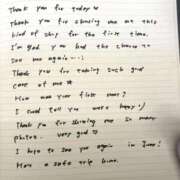 Thank you for today
Thank you for showing me
kind of ship for the first time.
I'm glad you had the chance to
see me again
Thank you for taking such good
care of me
How was your first
I could tell you were happy :)
Thank you for showing me so many
photos. very good
I hope to see you again in June!
Have a safe trip home.